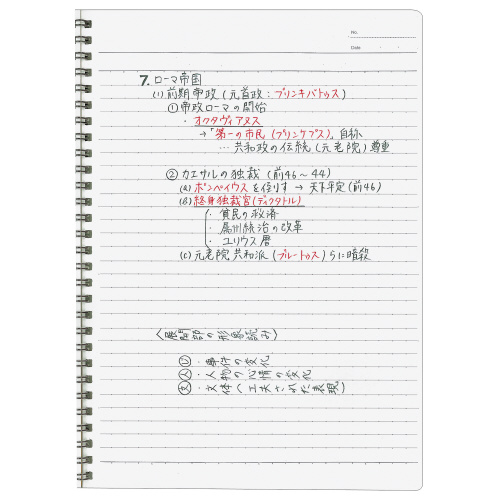 No.
Date
7. ローマ帝国
(1) 前期帝政 (元首政：プリンキパトゥス)
① 帝政ローマの開始
・オクタヴィアヌス
→「第一の市民 (プリンケプス)」自称
… 共和政の伝統 (元老院) 尊重
② カエサルの独裁 (前46～44)
(a) ポンペイウスを倒す → 天下平定 (前46)
(b) 終身独裁官 (ディクタトル)
・貧民の救済
・属州統治の改革
・ユリウス暦
(c) 元老院共和派 (ブルートゥス) らに暗殺
〈展開部の形象読み〉
・事件の変化
・人物の心情の変化
・文体 (工夫された表現)